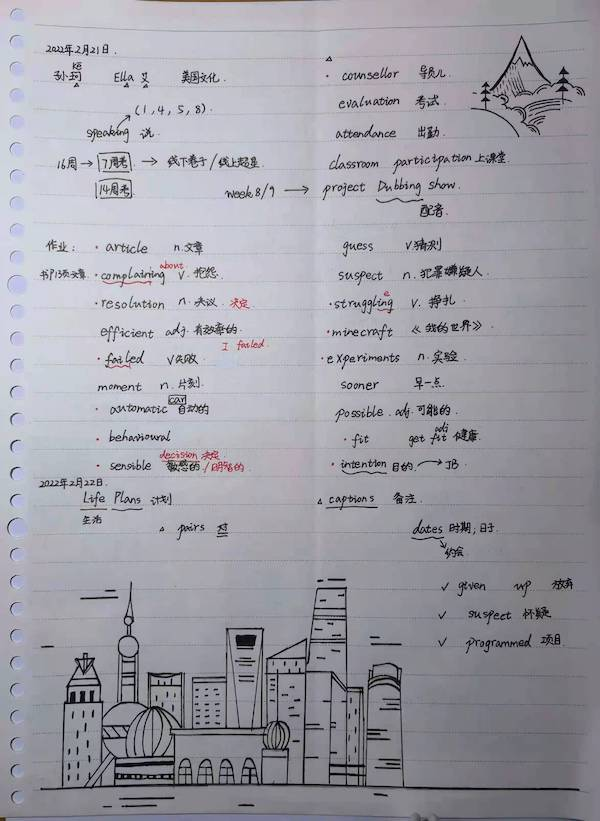 2022年2月21日.
孙珂 kē Ella 艾 美国文化.
(1, 4, 5, 8).
speaking 说
16周 → 7周考 → 线下卷子/线上超星
14周考
week 8/9 → project Dubbing show.
配音
counsellor 导员儿
evaluation 考试
attendance 出勤
classroom participation 上课堂
作业:
· article n.文章
书P13页文章. · complaining about v. 抱怨.
· resolution n. 决议. 决定.
efficient adj. 有效率的.
· failed v.失败 I failed.
moment n. 片刻.
· automatic car 自动的
· behavioural
· sensible 敏感的/明智的 decision 决定
guess v.猜测
suspect n. 犯罪嫌疑人.
· struggling e v. 挣扎
· minecraft 《我的世界》
· experiments n. 实验.
sooner 早一点.
possible. adj. 可能的.
· fit get fit adj 健康.
· intention 目的. → JB
2022年2月22日.
Life Plans 计划
生活
pairs 对
captions 备注.
dates 时期, 日子.
约会
✓ given up 放弃
✓ suspect 怀疑
✓ programmed 项目